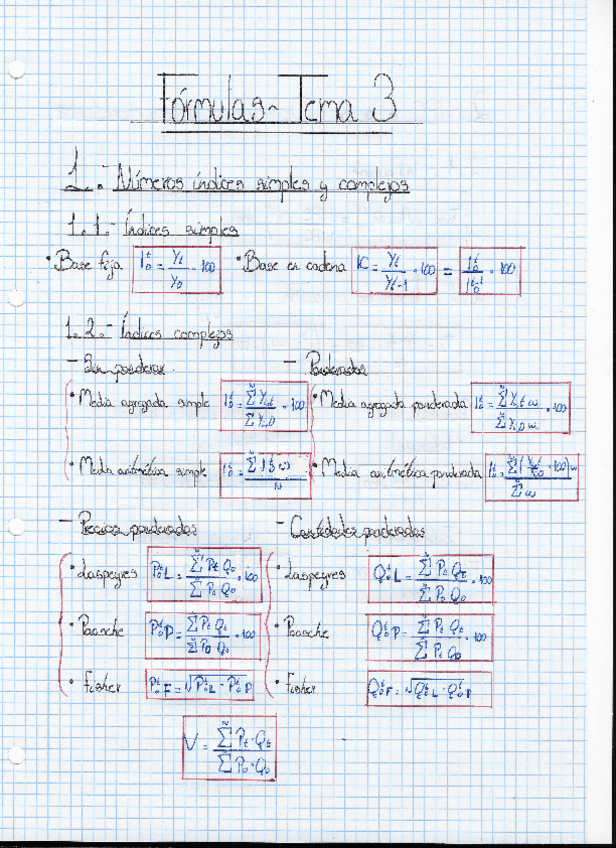 Fórmulas - Tema 3
1.- Números índices simples y complejos
1.1.- Índices simples
· Base fija I₀ᵗ = Yt / Y₀ · 100 · Base en cadena IC = Yt / Yt-1 · 100 = I₀ᵗ / I₀ᵗ⁻¹ · 100
1.2.- Índices complejos
- Sin ponderar - Ponderados
· Media agregada simple I₀ᵗ = ΣYi,t / ΣYi,0 · 100 · Media agregada ponderada I₀ᵗ = ΣYi,t ω / ΣYi,0 ω · 100
· Media aritmética simple · Media aritmética ponderada
- Precios ponderados - Cantidades ponderadas
· Laspeyres P₀ᵗL = ΣPt Q₀ / ΣP₀ Q₀ · 100 · Laspeyres Q₀ᵗL = ΣP₀ Qt / ΣP₀ Q₀ · 100
· Paasche P₀ᵗP = ΣPt Qt / ΣP₀ Qt · 100 · Paasche Q₀ᵗP = ΣPt Qt / ΣPt Q₀ · 100
· Fisher P₀ᵗF = √P₀ᵗL · P₀ᵗP · Fisher Q₀ᵗF = √Q₀ᵗL · Q₀ᵗP
V = ΣPt · Qt / ΣP₀ · Q₀